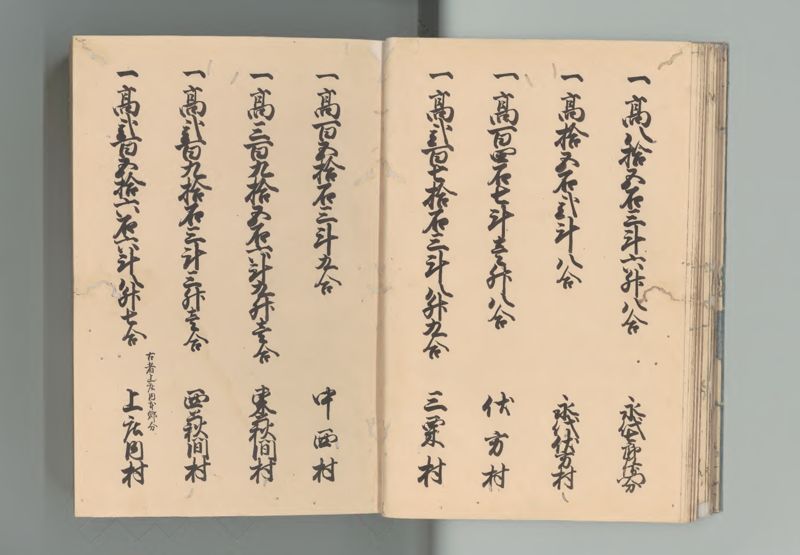 一高八拾五石三斗六升八合
一高拾五石弐斗八合 永代伏方村
一高百四石七斗壱升八合 伏方村
一高弐百七拾石三斗八升九合 三栗村
一高百五拾石三斗九合 中西村
一高三百九拾五石六斗九升壱合 東萩間村
一高弐百九拾石三斗三升壱合 西萩間村
一高弐百五拾六石六斗八升七合 上庄内村
古者上庄内本郷分